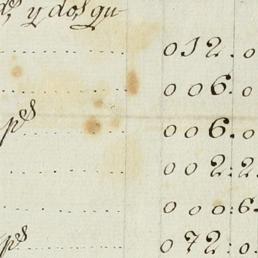 d.ˢ y dos gu
012.0
006.0
pˢ 006.0
002:2.
000:6.
pˢ 072:0.